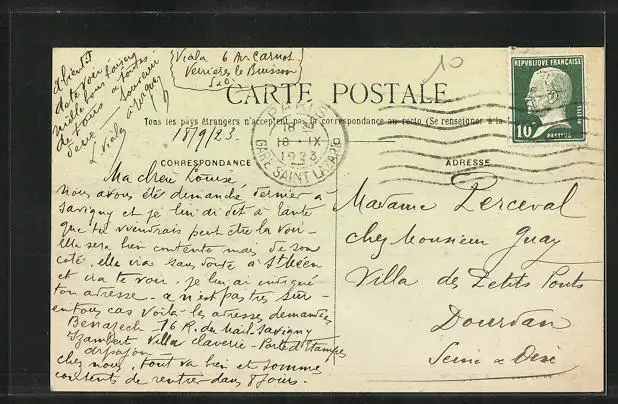 Viala 6 Av. Carnot
Verrières le Buisson
S&O
à bientôt
de te voir
mille bons baisers
de tous à toutes
deux
souvenir
L Viala
10
CARTE POSTALE
Tous les pays étrangers n'acceptent pas la correspondance au recto (Se renseigner à la
18/9/23.
PARIS
18
18 - IX
1923
GARE SAINT LAZARE
REPUBLIQUE FRANÇAISE
POSTES
10c
PASTEUR
CORRESPONDANCE
ADRESSE
Ma chère Louise
nous avons été dimanche dernier à
Savigny et je lui ai dit à tante
que tu viendrais peut être la voir -
elle sera bien contente mais de son
coté, elle ira sans doute à St
et ira te voir, je lui ai indiqué
ton adresse - a n'est pas très sûr -
en tous cas voilà les adresses demandées
Benazech 16 R. du Mail - Savigny
Izambert Villa Claverie - Porte d'Etampes
arpajon
chez nous, tout va bien et somme
contents de rentrer dans 8 jours -
Madame Perceval
chez Monsieur Guay
Villa des Petits Ponts
Dourdan
Seine & Oise